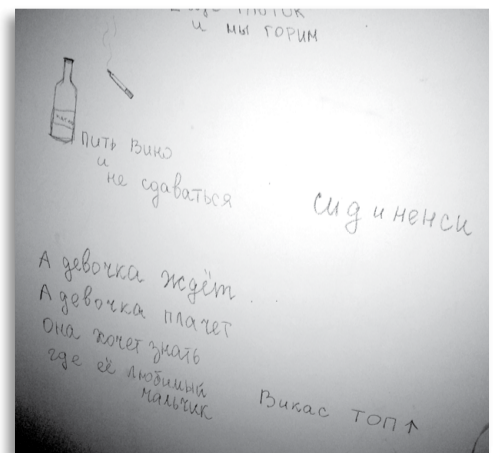 глоток
и мы горим
пить вино
и
не сдаваться
сид и ненси
А девочка ждёт...
А девочка плачет
Она хочет знать
где её любимый
мальчик
Викас ТОП↑